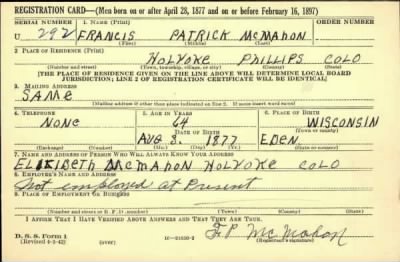 REGISTRATION CARD—(Men born on or after April 28, 1877 and on or before February 16, 1897)
SERIAL NUMBER 1. NAME (Print)
U 292 FRANCIS PATRICK MCMAHON
(First) (Middle) (Last)
2. PLACE OF RESIDENCE (Print)
HOLYOKE PHILLIPS COLO
(Number and street) (Town, township, village, or city) (County) (State)
[THE PLACE OF RESIDENCE GIVEN ON THE LINE ABOVE WILL DETERMINE LOCAL BOARD
JURISDICTION; LINE 2 OF REGISTRATION CERTIFICATE WILL BE IDENTICAL]
3. MAILING ADDRESS
SAME
[Mailing address if other than place indicated on line 2. If same insert word same]
4. TELEPHONE 5. AGE IN YEARS 6. PLACE OF BIRTH
NONE 64 WISCONSIN
DATE OF BIRTH (Town or county)
AUG 3. 1877 EDEN
(Exchange) (Number) (Mo.) (Day) (Yr.) (State or country)
7. NAME AND ADDRESS OF PERSON WHO WILL ALWAYS KNOW YOUR ADDRESS
ELIZIBETH MCMAHON HOLYOKE COLO
8. EMPLOYER'S NAME AND ADDRESS
Not employed at Present
9. PLACE OF EMPLOYMENT OR BUSINESS
(Number and street or R. F. D. number) (Town) (County) (State)
I AFFIRM THAT I HAVE VERIFIED ABOVE ANSWERS AND THAT THEY ARE TRUE.
F.P. McMahon
D. S. S. Form 1
(Revised 4-1-42) (over) 16—21630-2 (Registrant's signature)